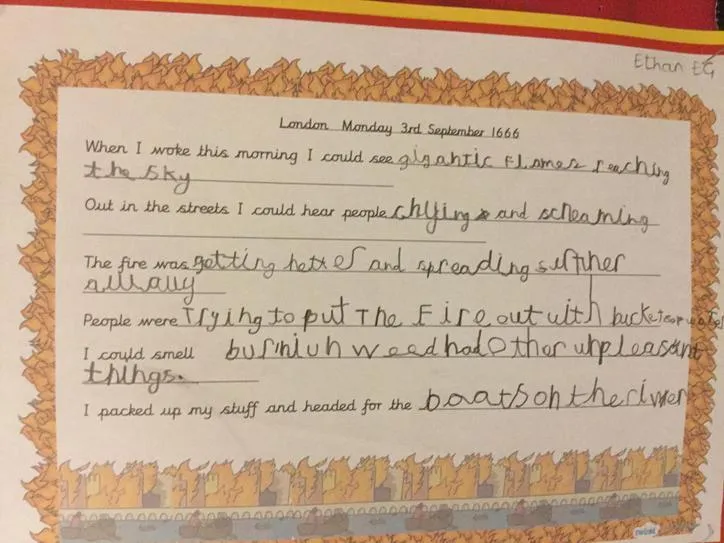 Ethan EG
London Monday 3rd September 1666
When I woke this morning I could see gigantic flames reaching
the sky
Out in the streets I could hear people chying and screaming
The fire was getting hetter and spreading surther
Trying to put The Fire out with bucketsop water
People were
I could smell burniuh weed had Other unpleasant
things.
I packed up my stuff and headed for the boats on the river
twinkl